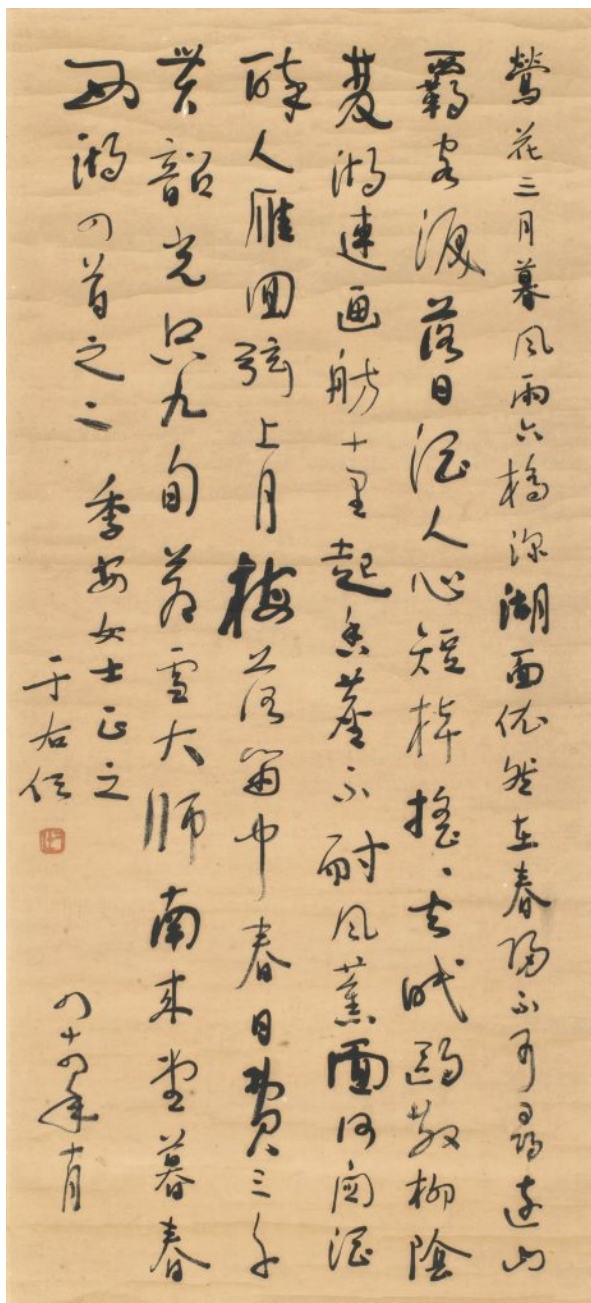 鶯花三月暮風雨六橋深湖面依然在春陽不可尋遠山
羈客淚落日酒人心短棹搖、去眠鷗散柳陰
湖連画舫十里起香塵不耐風薰面何関酒
醉人雁回弦上月梅落笛中春日費三千
貫韶光只九旬蒼雪大師南來堂暮春
西湖四首之二 季安女士正之
于右任
四十四年十月